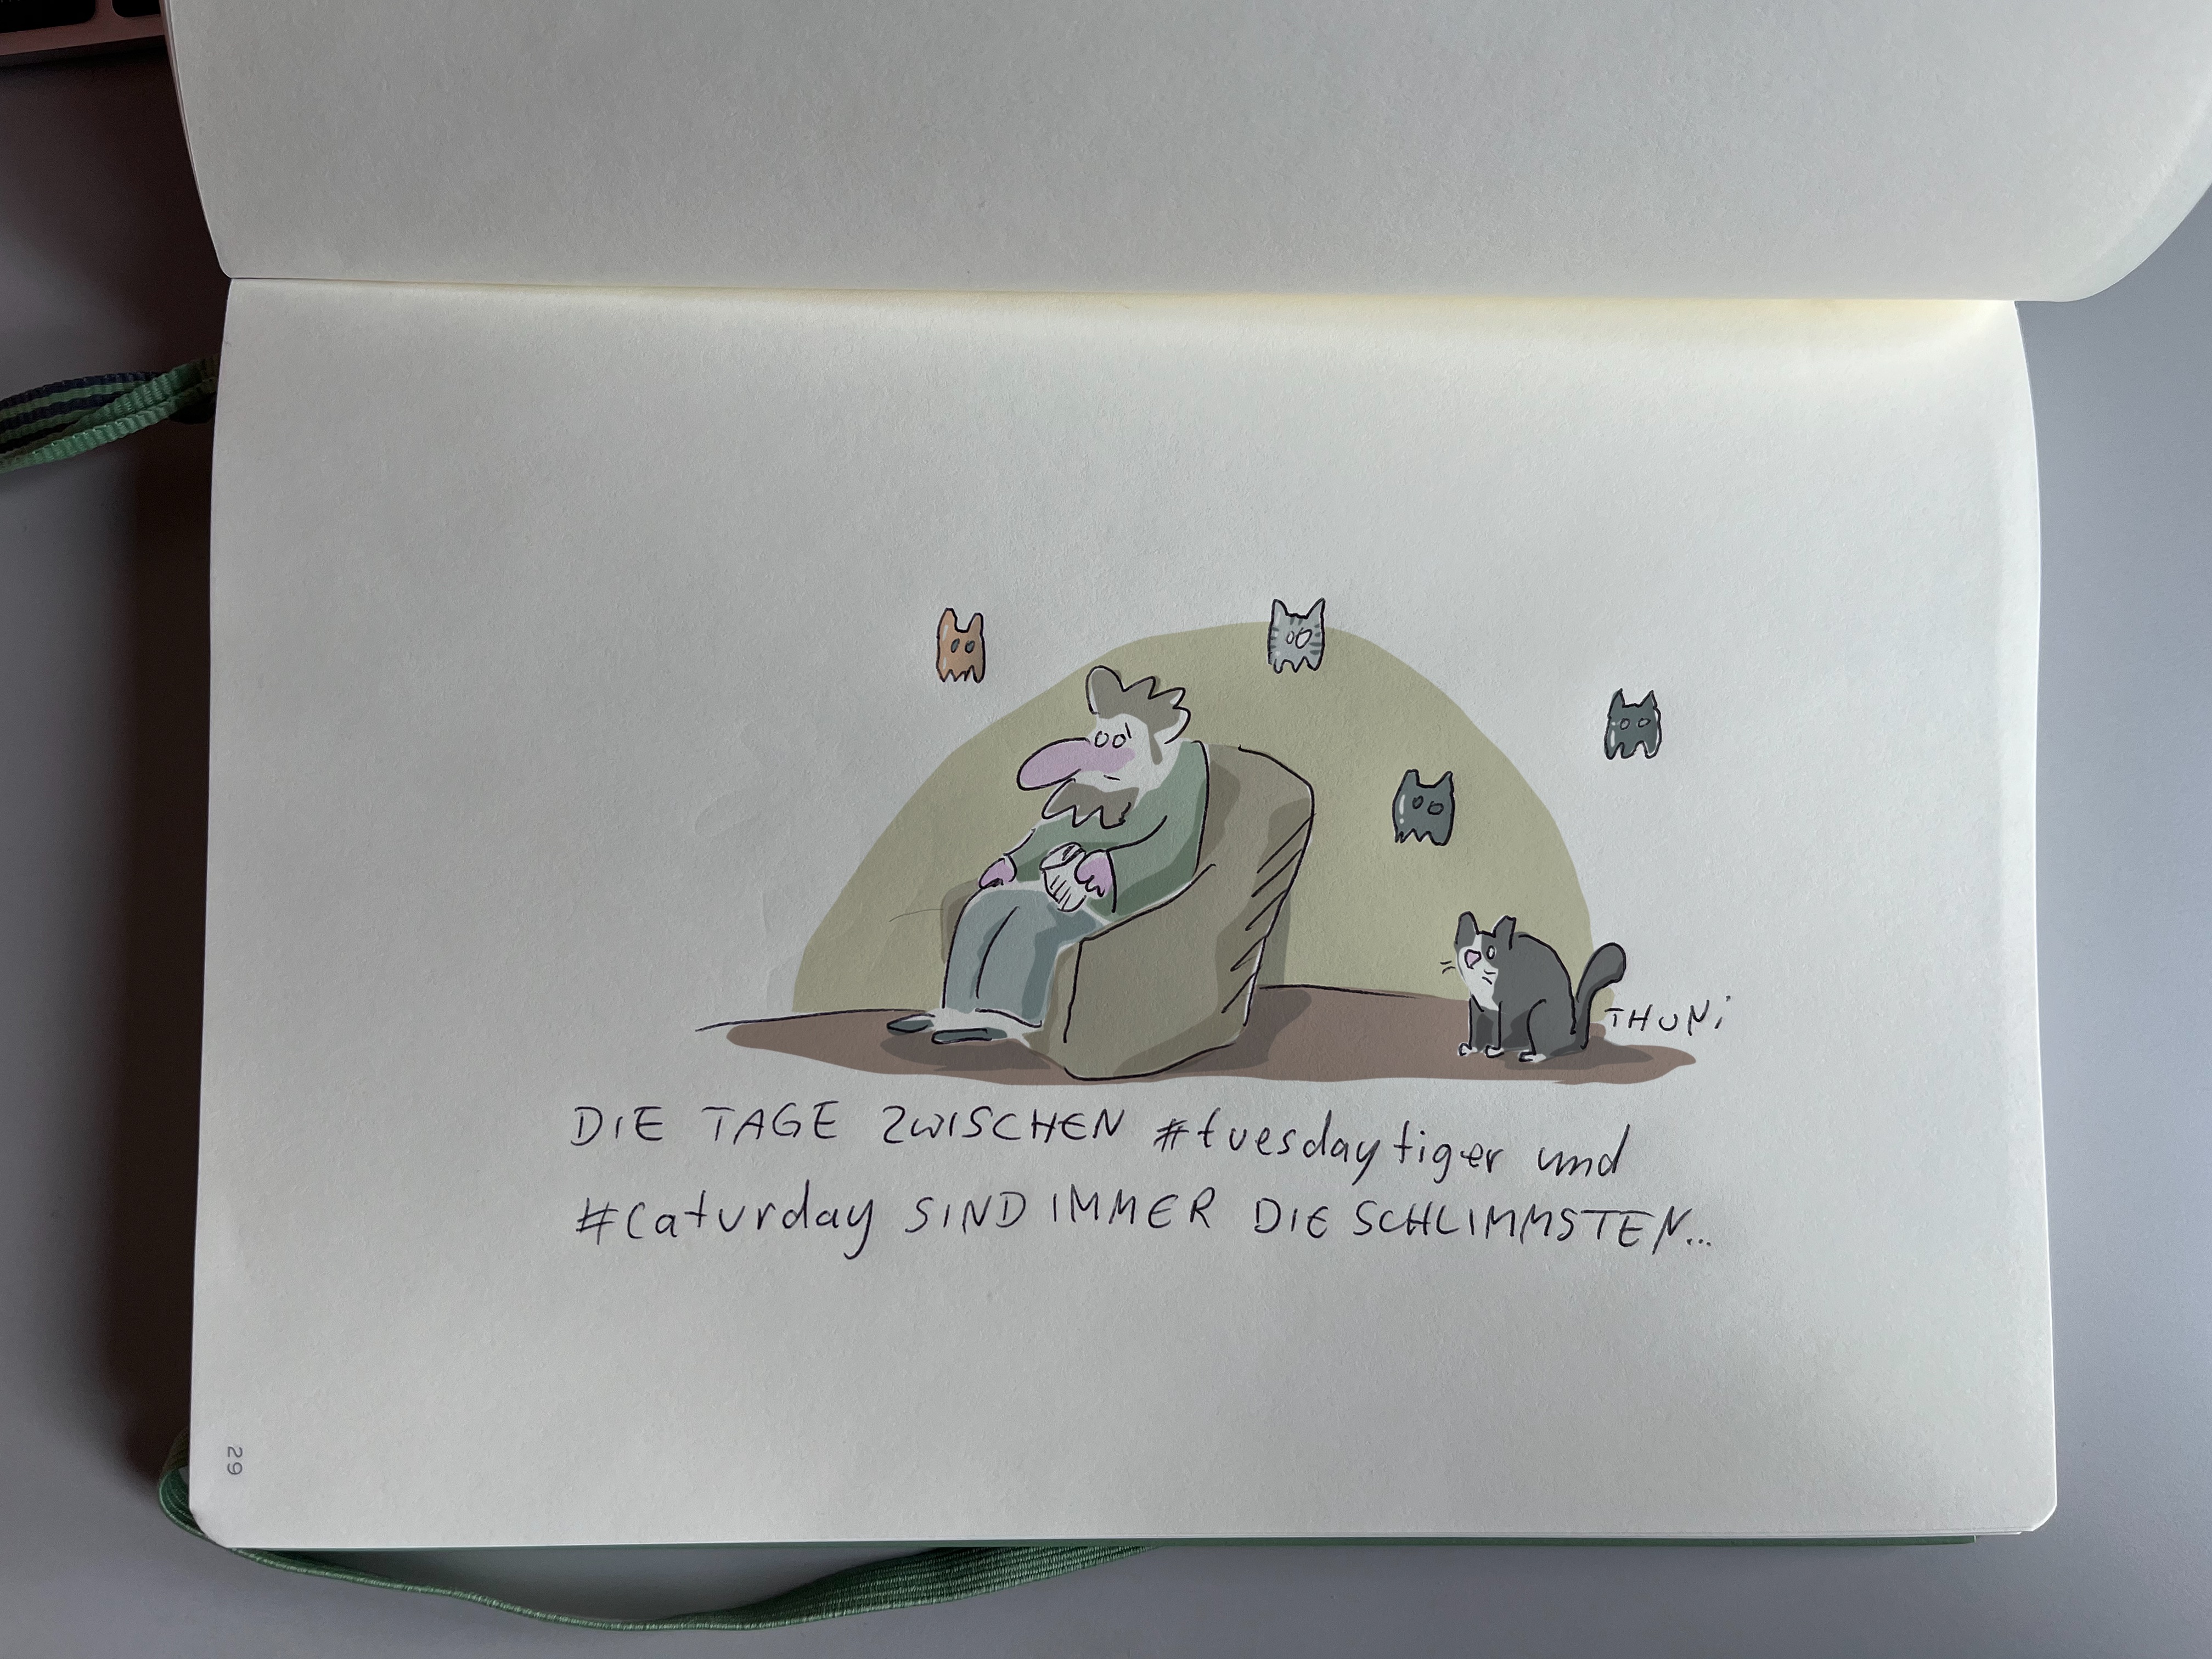 THUNi
DIE TAGE ZWISCHEN #tuesdaytiger und
#caturday SIND IMMER DIE SCHLIMMSTEN...
29